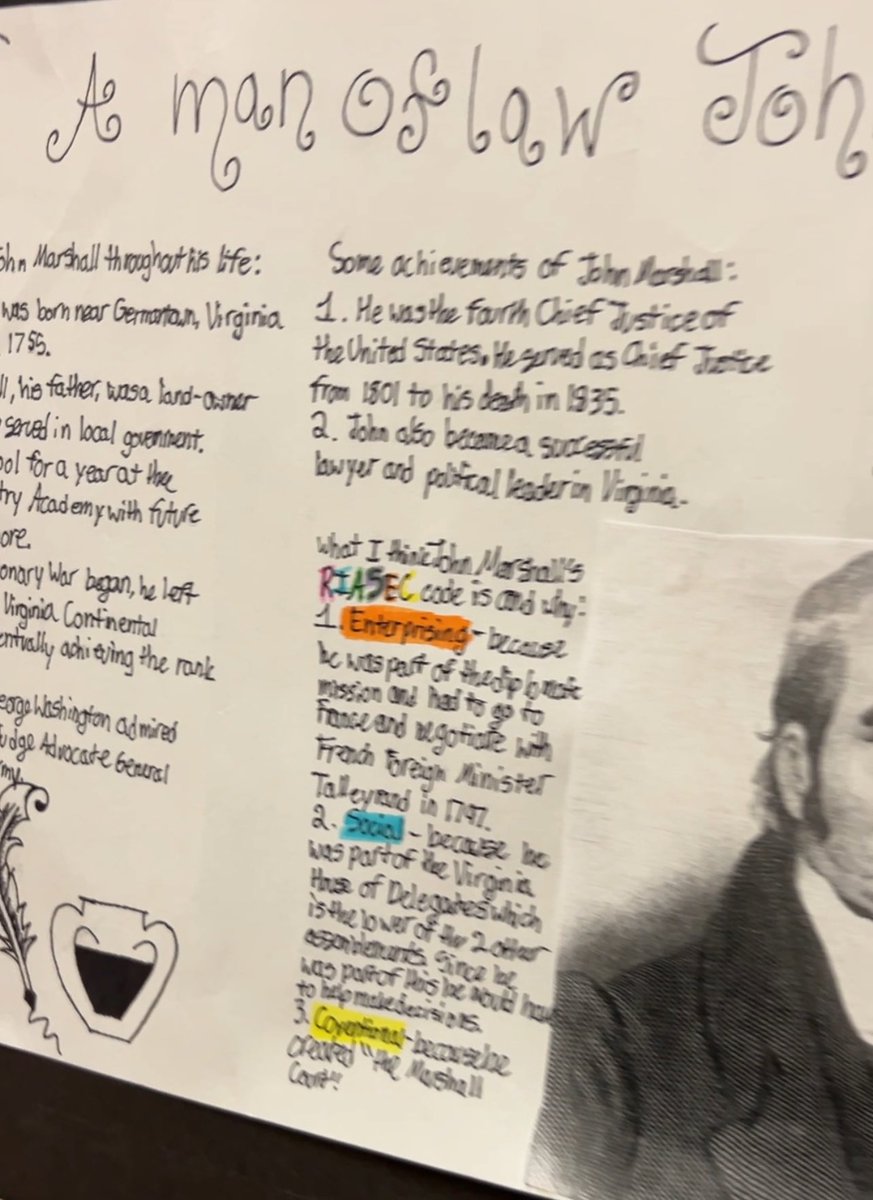 A man of law Joh
ohn Marshall throughout his life:
was born near Germantown, Virginia
1755.
ll, his father, was a land-owner
served in local government.
ool for a year at the
try Academy with future
ore.
onary War began, he left
Virginia Continental
entually achieving the rank
eorge Washington admired
udge Advocate General
my.
Some achievements of John Marshall:
1. He was the fourth Chief Justice of
the United States. He served as Chief Justice
from 1801 to his death in 1835.
2. John also became a successful
lawyer and political leader in Virginia.
What I think John Marshall's
RIASEC code is and why:
1. Enterprising - because
he was part of the diplomatic
mission and had to go to
France and negotiate with
French Foreign Minister
Talleyrand in 1797.
2. Social - because he
was part of the Virginia
House of Delegates which
is the lower of the 2 other
assemblements. Since he
was part of this he would have
to help make decisions.
3. Coventional - because he
created "the Marshall
Court"